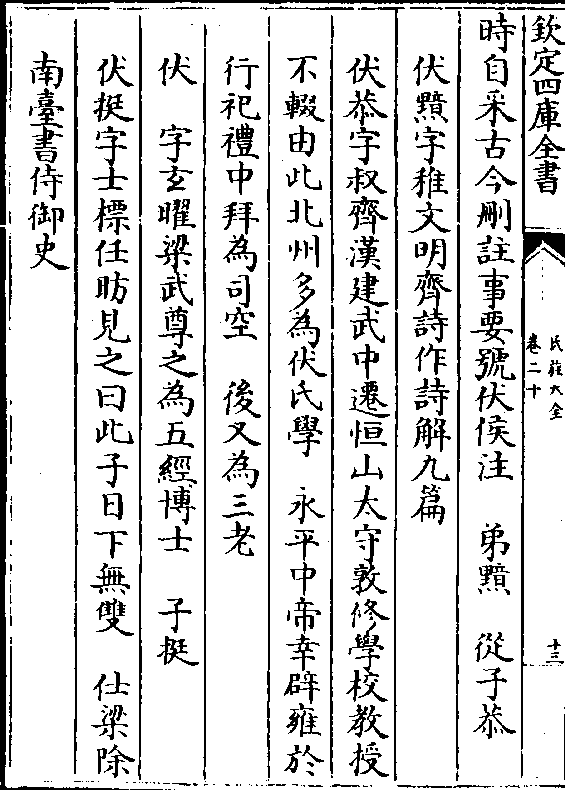 欽定四庫全書
氏族大全
卷二十
十三
時自采古今刪註事要號伏侯注　弟黯　從子恭
伏黯字稚文明齊詩作詩解九篇
伏恭字叔齊漢建武中遷恒山太守敦修學校教授
不輟由此北州多為伏氏學　永平中帝幸辟雍於
行祀禮中拜為司空　後又為三老
伏　字玄曜梁武尊之為五經博士　子挺
伏挺字士標任昉見之曰此子日下無雙　仕梁除
南臺書侍御史